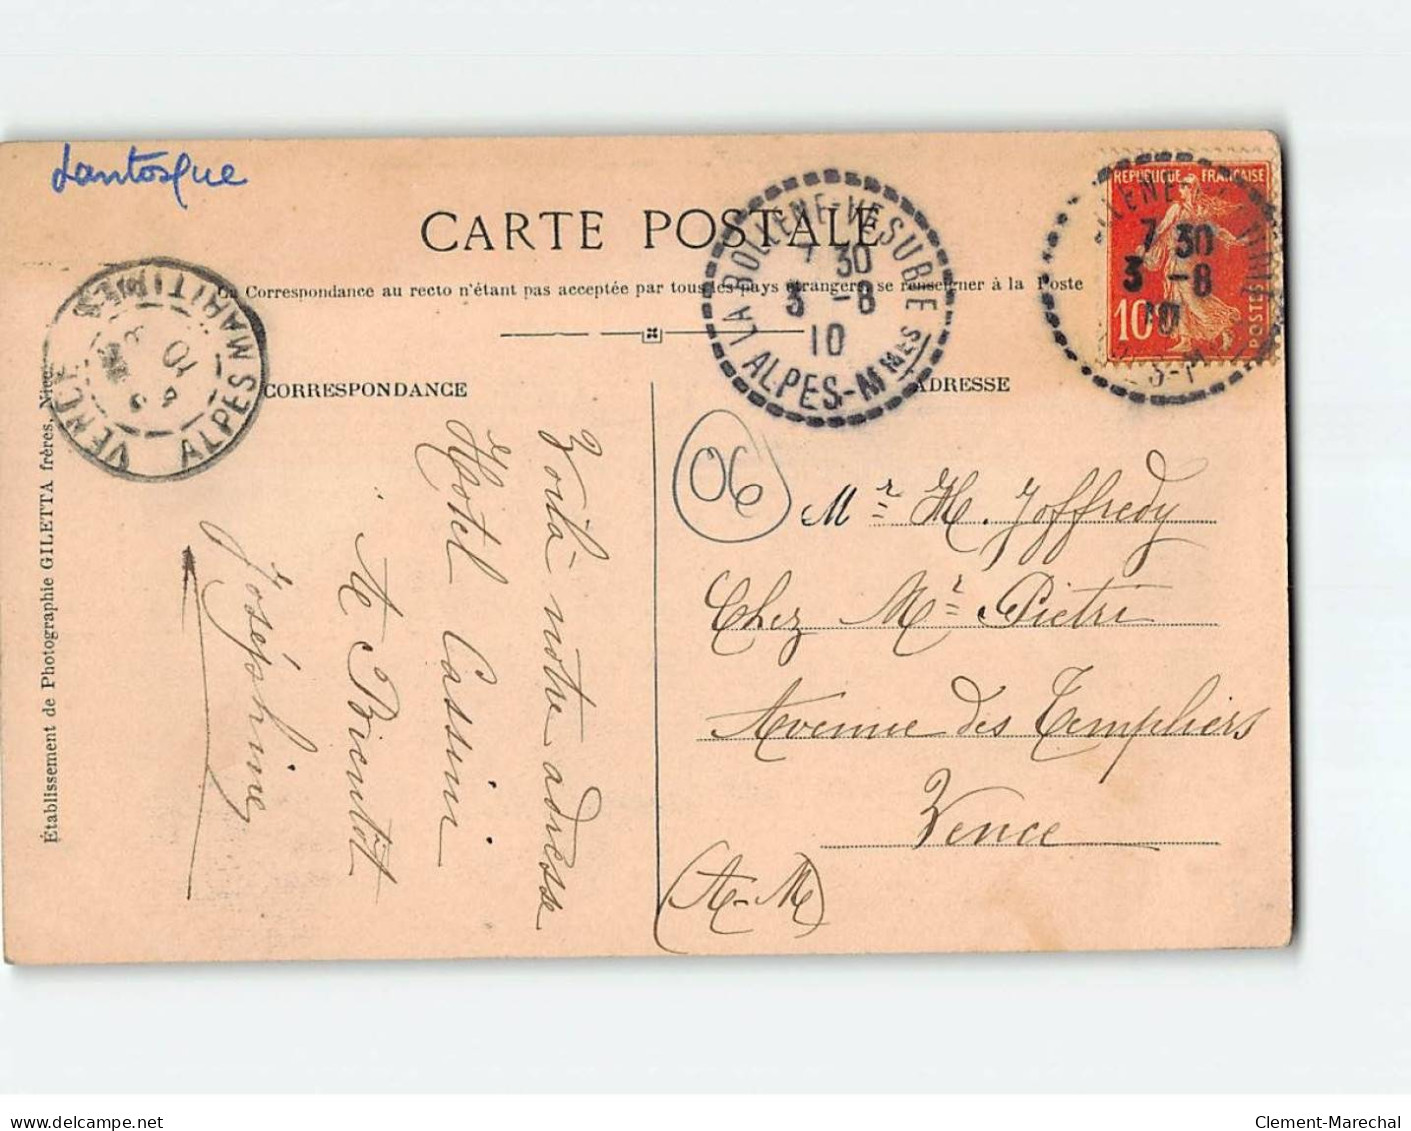 Lantosque
CARTE POSTALE
La Correspondance au recto n'étant pas acceptée par tous les pays étrangers, se renseigner à la Poste
CORRESPONDANCE
ADRESSE
LA BOLLÈNE-VÉSUBIE
7 30
3 -8
10
ALPES-MMES
REPUBLIQUE FRANÇAISE
7 30
3 -8
10
10
POSTES
VENCE
ALPES MARITIMES
10
06
Voilà notre adresse
Hôtel Cassin
A Bientôt
Joséphine
Mr H. Joffredy
Chez Mr Pietri
Avenue des Templiers
Vence
(A-M)
Établissement de Photographie GILETTA frères, Nice
delcampe.net
Clement-Marechal